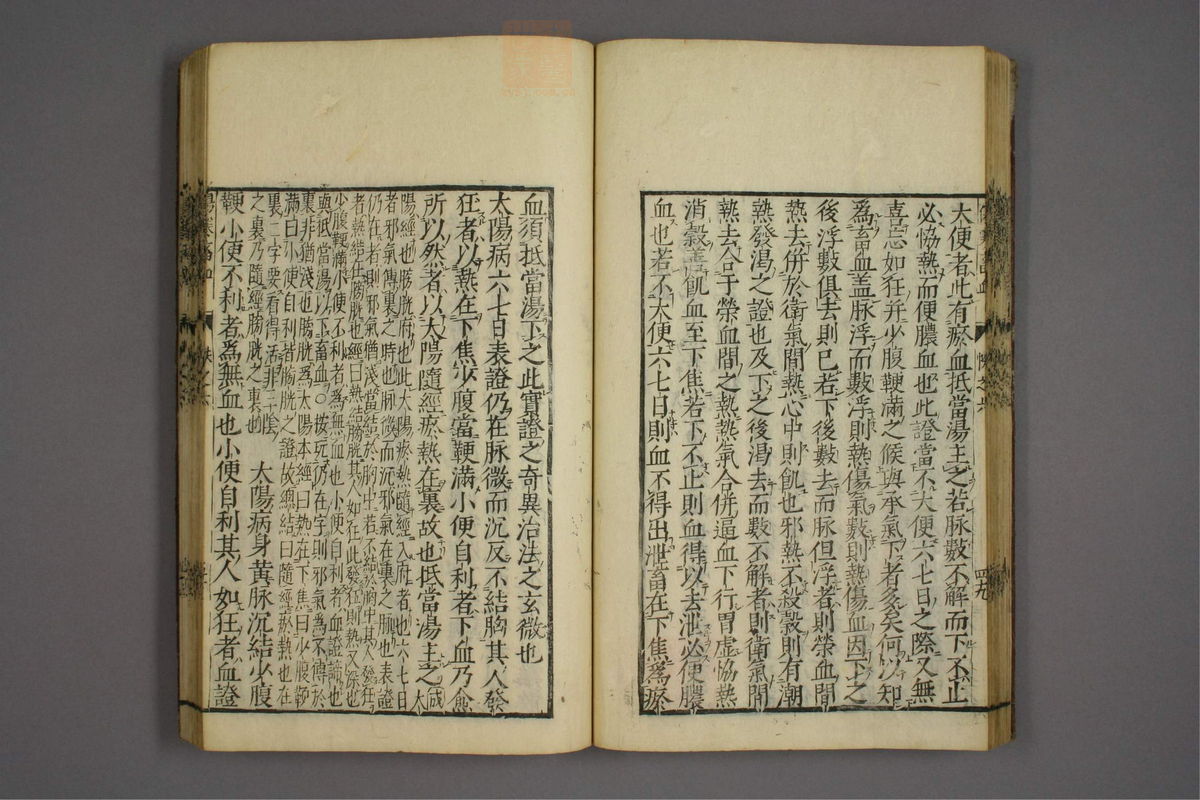 大便者此有瘀血抵當湯主之若脉數不解而下不止
必恊熱而便膿血也此證當不大便六七日之際又無
喜忘如狂并少腹鞕滿之候與承氣下者多矣何以知
爲畜血盖脉浮而數浮則熱傷氣數則熱傷血因下之
後浮數俱去則已若下後數去而脉但浮者則榮血間
熱去併於衛氣間熱心中則飢也邪熱不殺穀則有潮
熱發渴之證也及下之後渴去而數不解者則衛氣間
熱去合于榮血間之熱熱氣合併逼血下行胃虛恊熱
消穀善飢血至下焦若下不止則血得以去泄必便膿
血也若不大便六七日則血不得出泄畜在下焦爲瘀
血須抵當湯下之此實證之奇異治法之玄微也
太陽病六七日表證仍在脉微而沉反不結胸其人發
狂者以熱在下焦少腹當鞕滿小便自利者下血乃愈
所以然者以太陽隨經瘀熱在裏故也抵當湯主之成 太
陽經也膀胱府也此太陽瘀熱隨經入府者也六七日
者邪氣傳裏之時也脉微而沉邪氣在裏之脉也表證
仍在者則邪氣猶淺當結於胸中若不結於胸中其人發狂
者熱結在膀胱也經曰熱結膀胱其人如狂此發狂則熱又深也
少腹鞕滿小便不利者爲無血也小便自利者血證諦也
與抵當湯以下畜血○按玩仍在字則邪氣爲不傳於
裏非猶淺也膀胱爲太陽本經曰熱在下焦曰少腹鞕
滿曰小便自利皆膀胱之證故總結曰隨經瘀熱也在
裏二字要看得活非三陰
之裏乃隨經膀胱之裏也
太陽病身黃脉沉結少腹
鞕小便不利者爲無血也小便自利其人如狂者血證